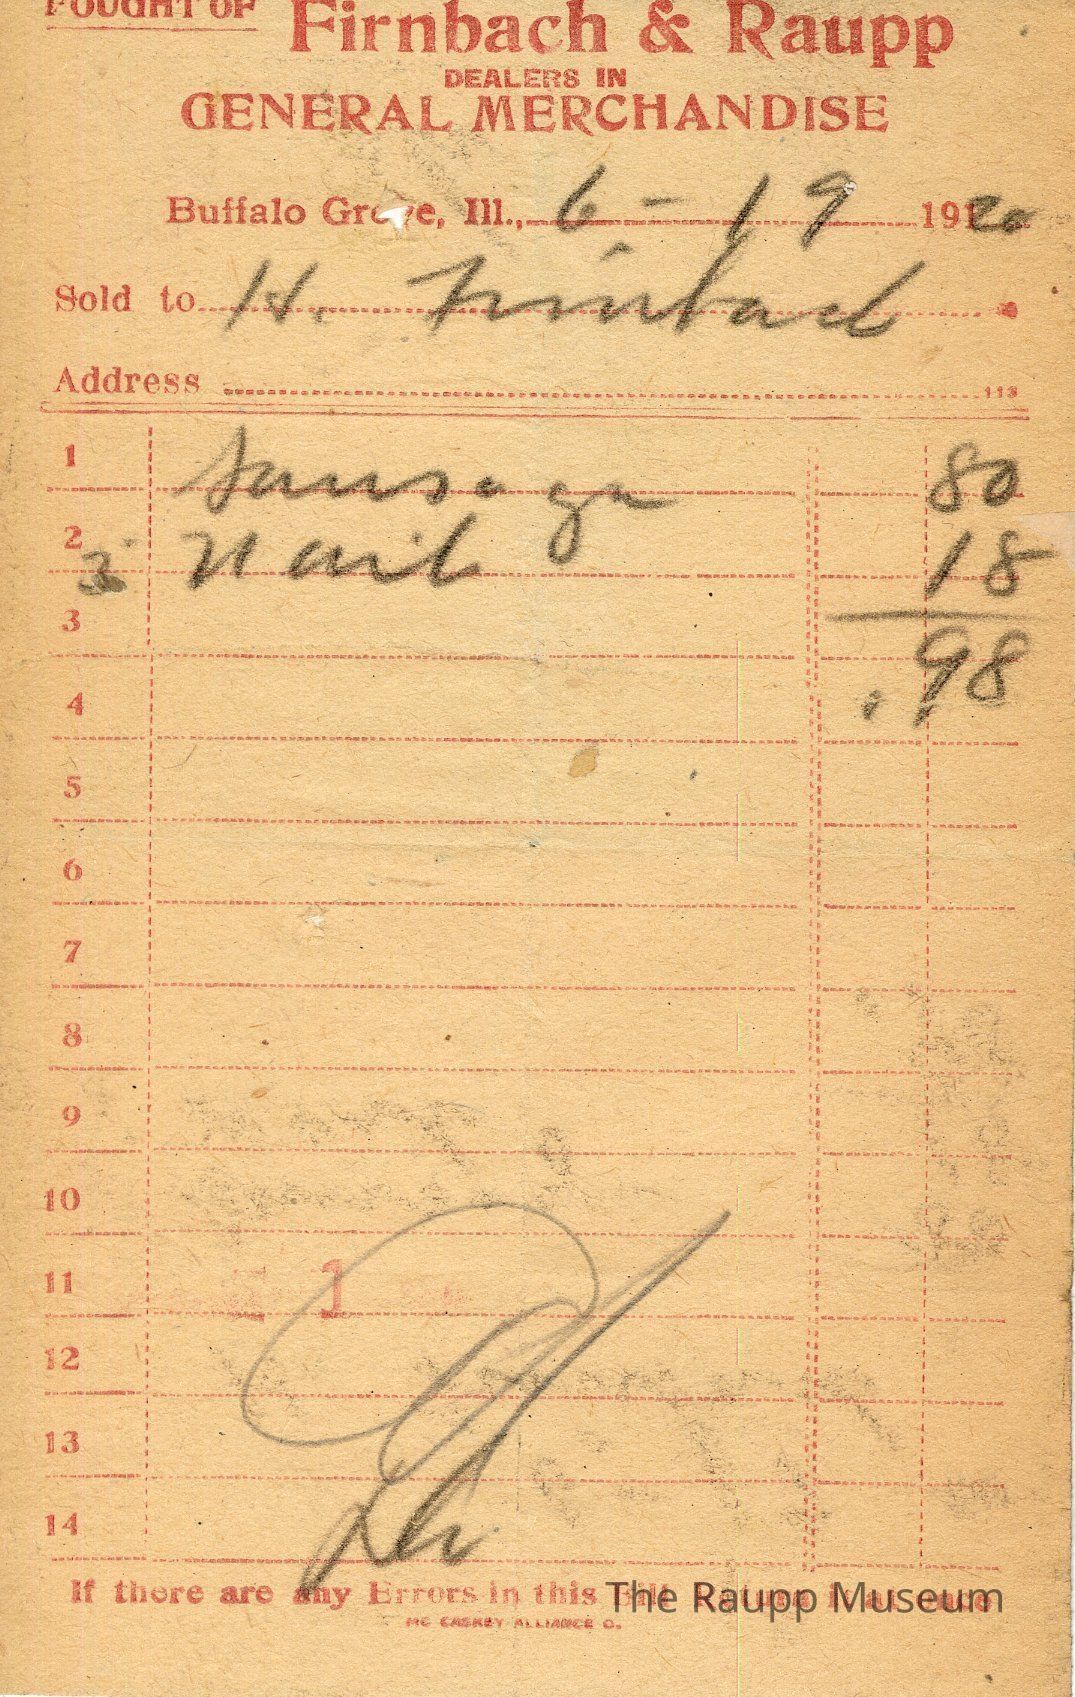 BOUGHT OF Firnbach & Raupp
DEALERS IN
GENERAL MERCHANDISE
Buffalo Grove, Ill., 6-19 1920
Sold to H. Firnbach
Address
113
1 Sausage 80
2 3 Nails 18
3 .98
4
5
6
7
8
9
10
11
12
13
14
If there are any Errors in this Bill Return it at once
MC CASKEY ALLIANCE O.
The Raupp Museum